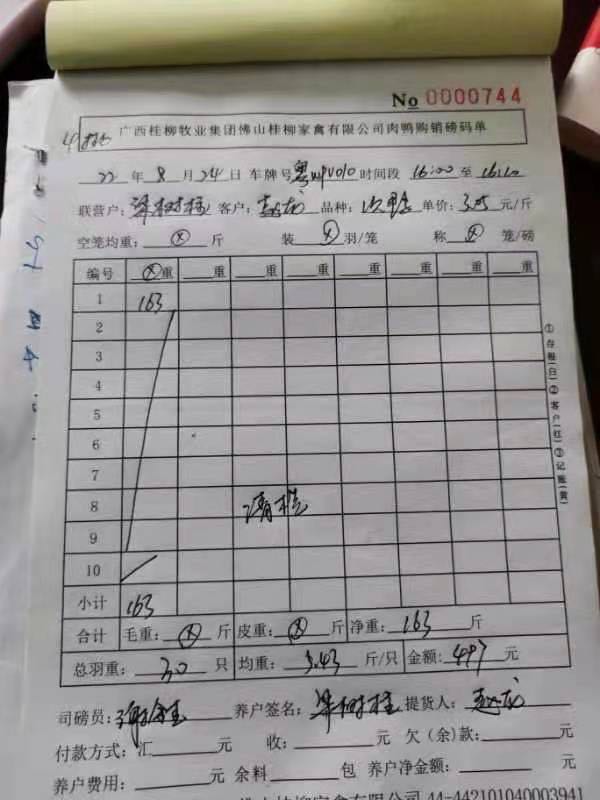 No 0000744
广西桂柳牧业集团佛山桂柳家禽有限公司肉鸭购销磅码单
22 年 8 月 24 日 车牌号 时间段 16:00 至 16:10
联营户: 梁树桂 客户: 赵龙 品种: 单价: 3.05 元/斤
空笼均重: ⊗ 斤 装 ⊗ 羽/笼 称 ⊗ 笼/磅
编号 ⊗重 重 重 重 重 重 重
1 163
2
3
4
5
6
7
8 清栏
9
10
小计 163
合计 毛重: ⊗ 斤 皮重: ⊗ 斤 净重: 163 斤
总羽重: 30 只 均重: 5.43 斤/只 金额: 497 元
司磅员: 养户签名: 梁树桂 提货人: 赵龙
付款方式: 汇 元 收: 元 欠(余)款: 元
养户费用: 元 余料 包 养户净金额: 元
44-442101040003941
①存根(白)②客户(红)③记账(黄)